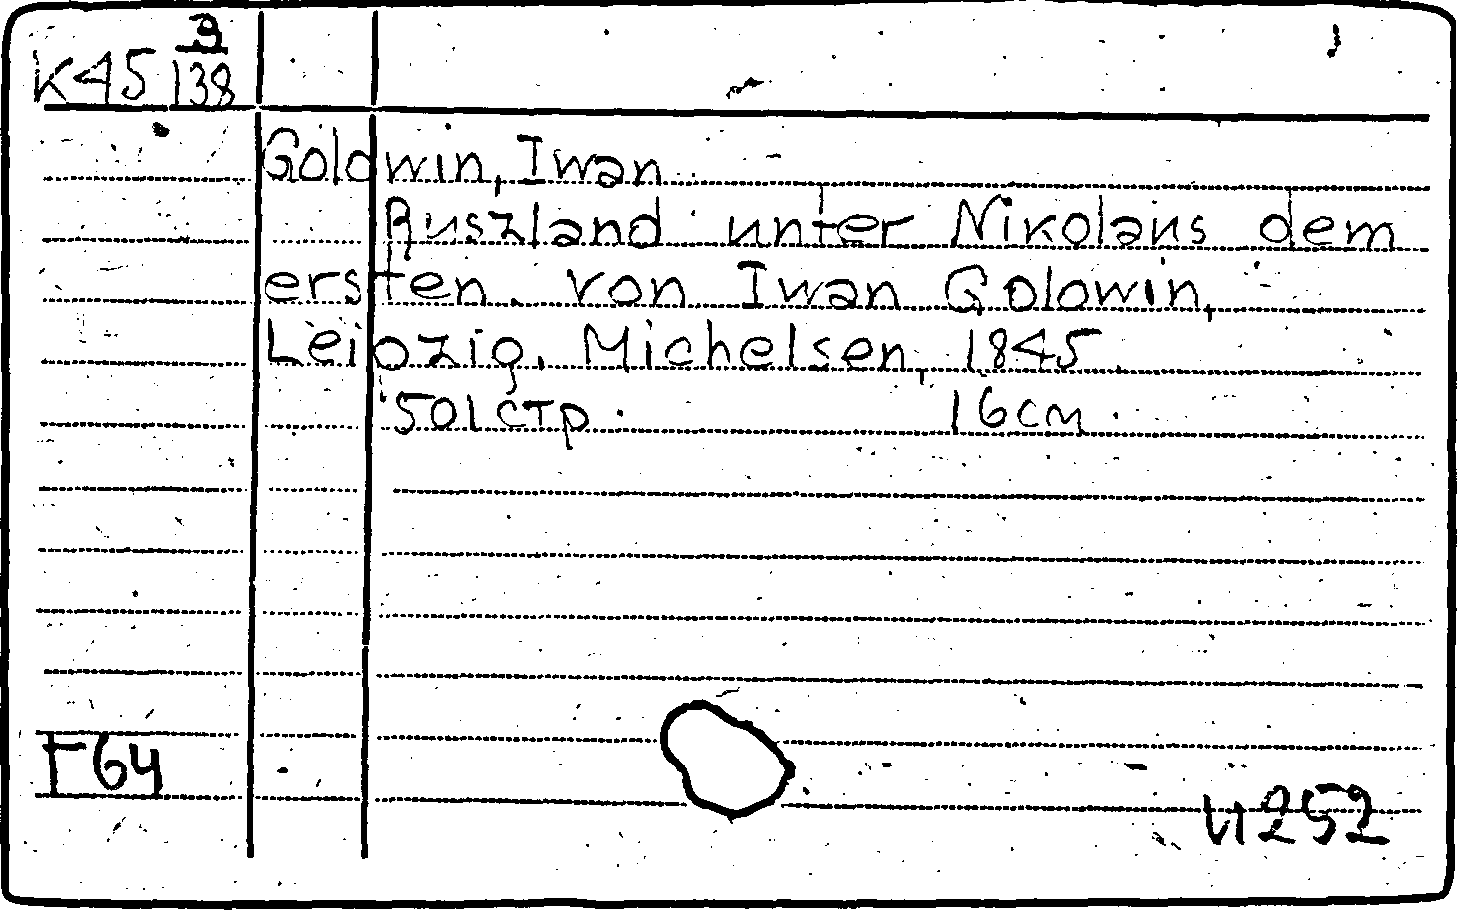 K45 В/138
Goldwin, Iwan
Ruszland unter Nikolaus dem
ersten. von Iwan Golowin,
Leipzig. Michelsen, 1845
501 стр. 16 см.
Г64
и252